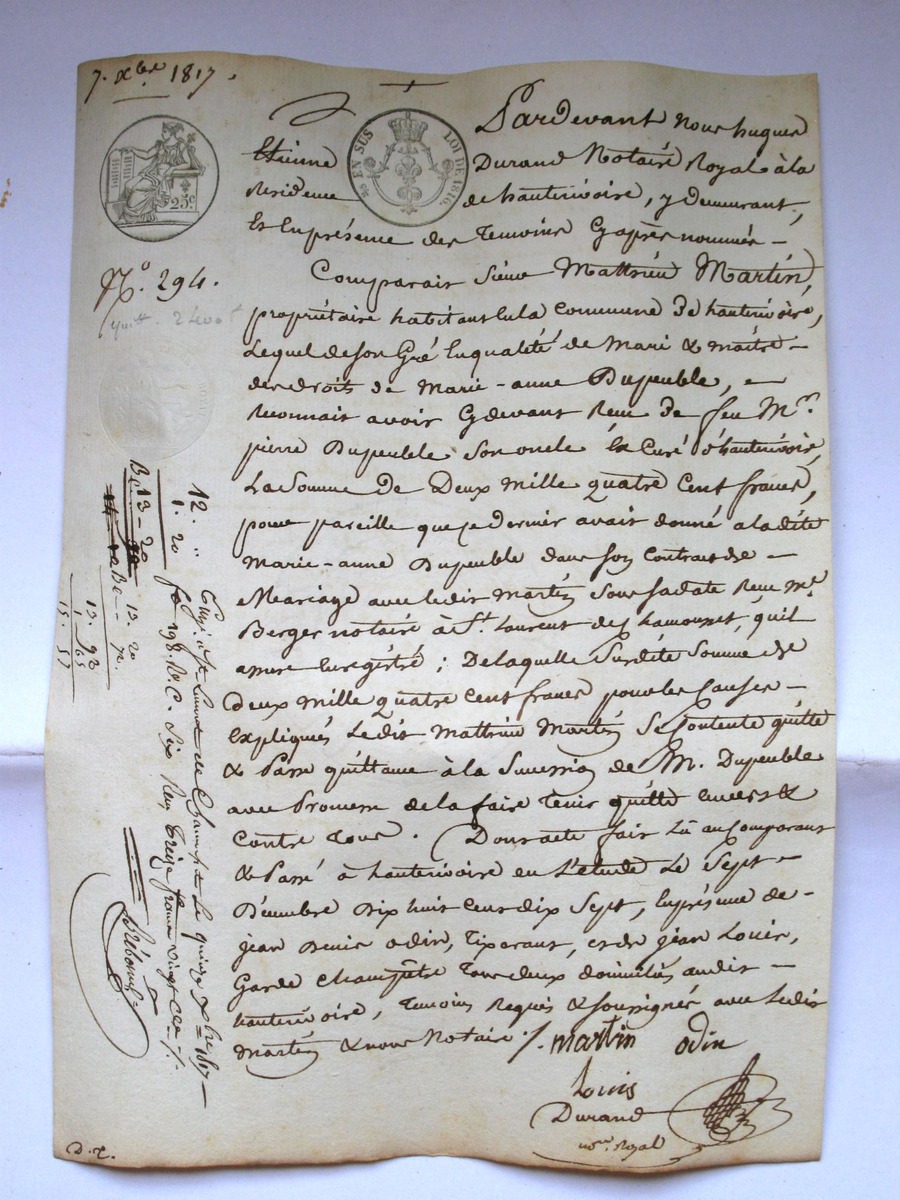 7. Xbre 1817.
Pardevant nous hugues
Etienne Durand Notaire Royal à la
Residence de hauterivoire, y demeurant,
Et En présence des Temoins Cy après nommés -
Comparait Sieur Matthieu Martin,
propriétaire habitant En la Commune de hauterivoire,
Lequel de son Gré En qualité de Mari & maitre -
des droits de Marie-anne Dupeuble,
Reconnait avoir Cydevant Reçu de feu Mr.
pierre Dupeuble Son oncle Ex Curé d'hauterivoire,
La Somme de Deux Mille quatre Cent francs,
pour pareille que ce dernier avait donné a ladite
Marie-anne Dupeuble dans son Contrat de -
Mariage avec ledit Martin Sous Sa date Reçu Me
Berger notaire à St. Laurent de Chamousset, qu'il
assure Enregistré ; De laquelle Susdite Somme de
Deux mille quatre Cent francs pour les Causes -
Expliqués Ledit Matthieu Martin Se Contente quitte
& Passe quittance à la Succession de M. Dupeuble
avec Promesse de la faire Tenir quitte Envers &
Contre Tous. Dont acte fait Lû au Comparant
& Passé à hauterivoire en L'étude Le Sept -
Décembre Dix huit Cent dix Sept, En présence de -
jean Denis odin, Tixerant, et de jean Louis,
Garde Champêtre Tous deux domiciliés audit -
hauterivoire, Temoins Requis & Soussignés avec Ledit
Martin & nous Notaire /.
martin odin
Louis
Durand
nore. Royal
EN SUS
LOI DE 1816
25c
No. 294.
quitt. 2400 f
12. "
1. 20
13 - 20
13. 20
13. 92
1. 65
15. 57
Engé. à St Laurent de Chamousset Le quinze Xbre 1817 -
fo 198. Ro. C. Six Reçu Treize francs vingt Ces /.
D. T.